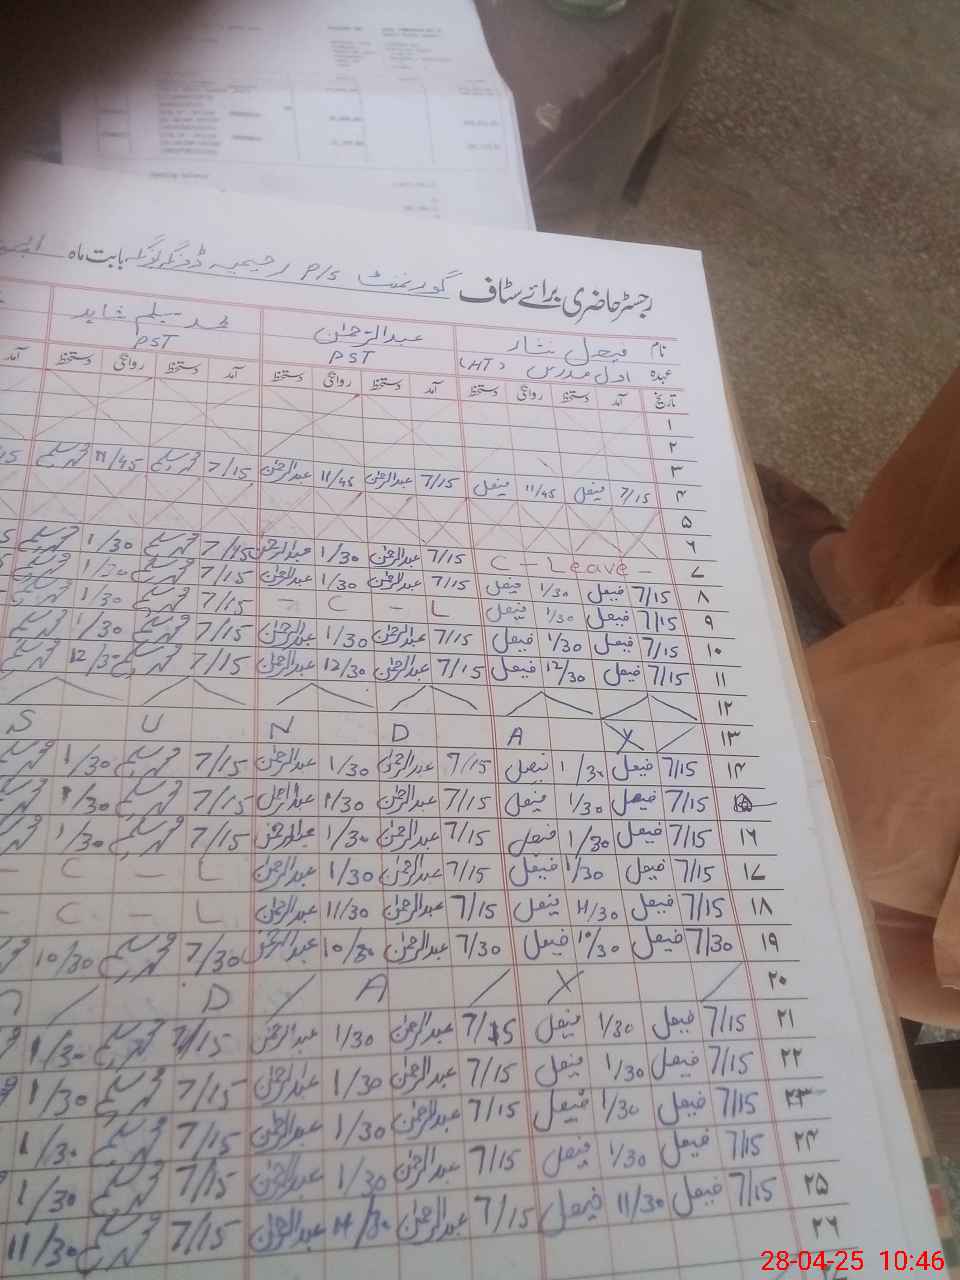 رجسٹر حاضری برائے سٹاف گورنمنٹ P/S رحیمیہ بابت ماہ
نام فیصل نثار عبدالرحمٰن محمد سلیم شاہد
عہدہ اول مدرس (HT) PST PST
تاریخ آمد دستخط روانگی دستخط آمد دستخط روانگی دستخط آمد دستخط روانگی دستخط آمد
۱
۲
۳
۴ 7/15 فیصل 11/45 فیصل 7/15 عبدالرحمٰن 11/45 عبدالرحمٰن 7/15 محمد سلیم 11/45 محمد سلیم
۵
۶
۷ C - Leave - 7/15 عبدالرحمٰن 1/30 عبدالرحمٰن 7/15 محمد سلیم 1/30 محمد سلیم
۸ 7/15 فیصل 1/30 فیصل 7/15 عبدالرحمٰن 1/30 عبدالرحمٰن 7/15 محمد سلیم 1/30 محمد سلیم
۹ 7/15 فیصل 1/30 فیصل - C - L 7/15 محمد سلیم 1/30 محمد سلیم
۱۰ 7/15 فیصل 1/30 فیصل 7/15 عبدالرحمٰن 1/30 عبدالرحمٰن 7/15 محمد سلیم 1/30 محمد سلیم
۱۱ 7/15 فیصل 12/30 فیصل 7/15 عبدالرحمٰن 12/30 عبدالرحمٰن 7/15 محمد سلیم 12/30 محمد سلیم
۱۲
۱۳ S U N D A Y
۱۴ 7/15 فیصل 1/30 فیصل 7/15 عبدالرحمٰن 1/30 عبدالرحمٰن 7/15 محمد سلیم 1/30 محمد سلیم
۱۵ 7/15 فیصل 1/30 فیصل 7/15 عبدالرحمٰن 1/30 عبدالرحمٰن 7/15 محمد سلیم 1/30 محمد سلیم
۱۶ 7/15 فیصل 1/30 فیصل 7/15 عبدالرحمٰن 1/30 عبدالرحمٰن 7/15 محمد سلیم 1/30 محمد سلیم
۱۷ 7/15 فیصل 1/30 فیصل 7/15 عبدالرحمٰن 1/30 عبدالرحمٰن - C - L
۱۸ 7/15 فیصل 11/30 فیصل 7/15 عبدالرحمٰن 11/30 عبدالرحمٰن - C - L
۱۹ 7/30 فیصل 10/30 فیصل 7/30 عبدالرحمٰن 10/30 عبدالرحمٰن 7/30 محمد سلیم 10/30 محمد سلیم
۲۰ n / D / A / Y /
۲۱ 7/15 فیصل 1/30 فیصل 7/15 عبدالرحمٰن 1/30 عبدالرحمٰن 7/15 محمد سلیم 1/30
۲۲ 7/15 فیصل 1/30 فیصل 7/15 عبدالرحمٰن 1/30 عبدالرحمٰن 7/15 محمد سلیم 1/30
۲۳ 7/15 فیصل 1/30 فیصل 7/15 عبدالرحمٰن 1/30 عبدالرحمٰن 7/15 محمد سلیم 1/30
۲۴ 7/15 فیصل 1/30 فیصل 7/15 عبدالرحمٰن 1/30 عبدالرحمٰن 7/15 محمد سلیم 1/30
۲۵ 7/15 فیصل 11/30 فیصل 7/15 عبدالرحمٰن 11/30 عبدالرحمٰن 7/15 محمد سلیم 11/30
۲۶
28-04-25 10:46